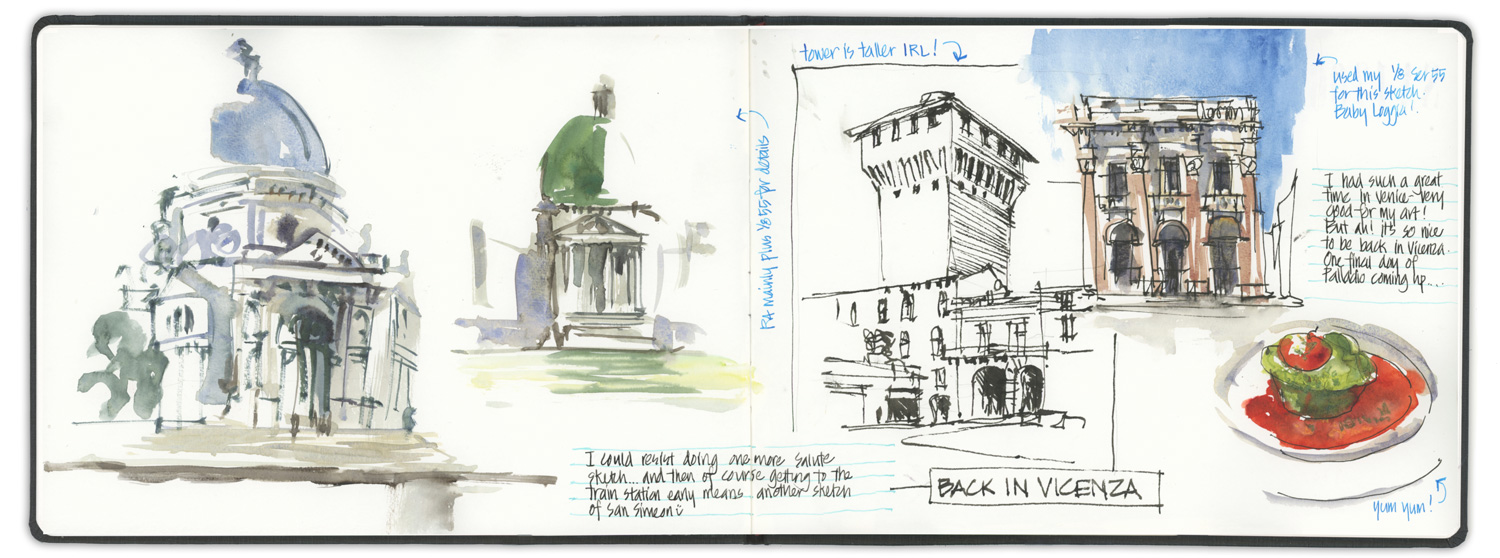 I could resist doing one more Salute
sketch... and then of course getting to the
train station early means another sketch
of San Simeon
RA mainly plus 1/8 55 for details
tower is taller IRL!
used my 1/8 Ser 55
for this sketch.
Baby Loggia!
I had such a great
time in Venice-very
good for my art!
But ah! it's so nice
to be back in Vicenza.
One final day of
Palladio coming up....
BACK IN VICENZA
yum yum!